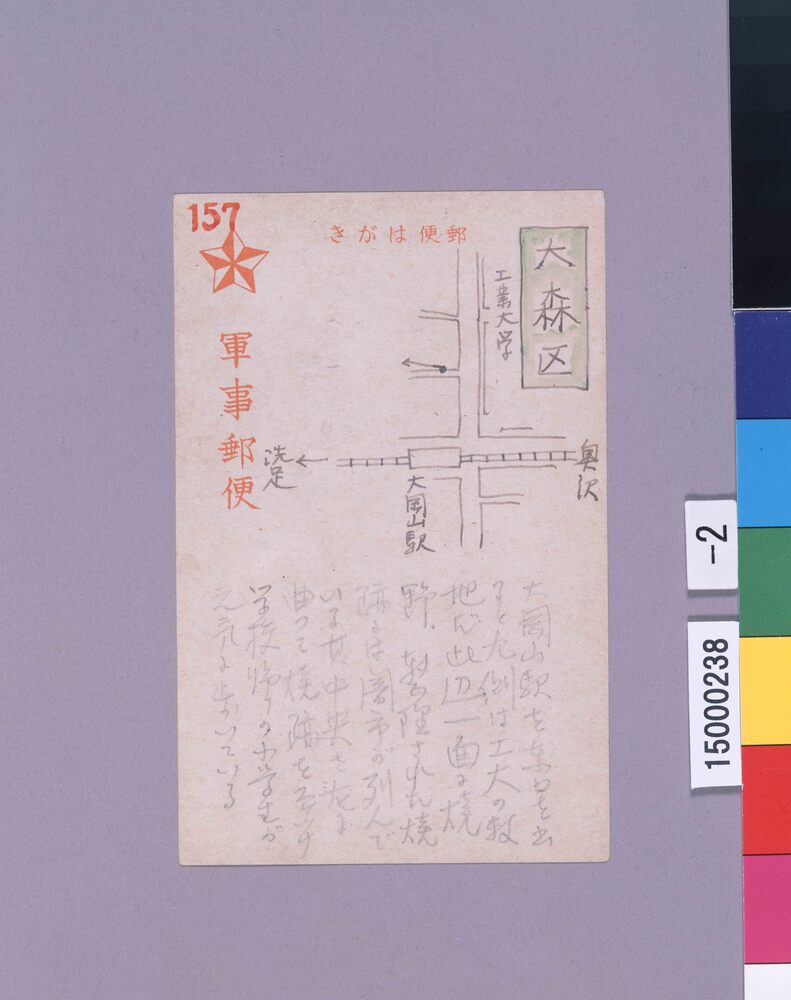 157
郵便はがき
軍事郵便
大森区
工業大学
奥沢
大岡山駅
洗足
大岡山駅を東口を出
ると左側は工大の敷
地だ此辺一面に焼
野、整理された焼
跡には闇市が列んで
いる其中央を左に
曲つて焼跡を
学校帰りの小学生が
元気に歩いている
-2
15000238